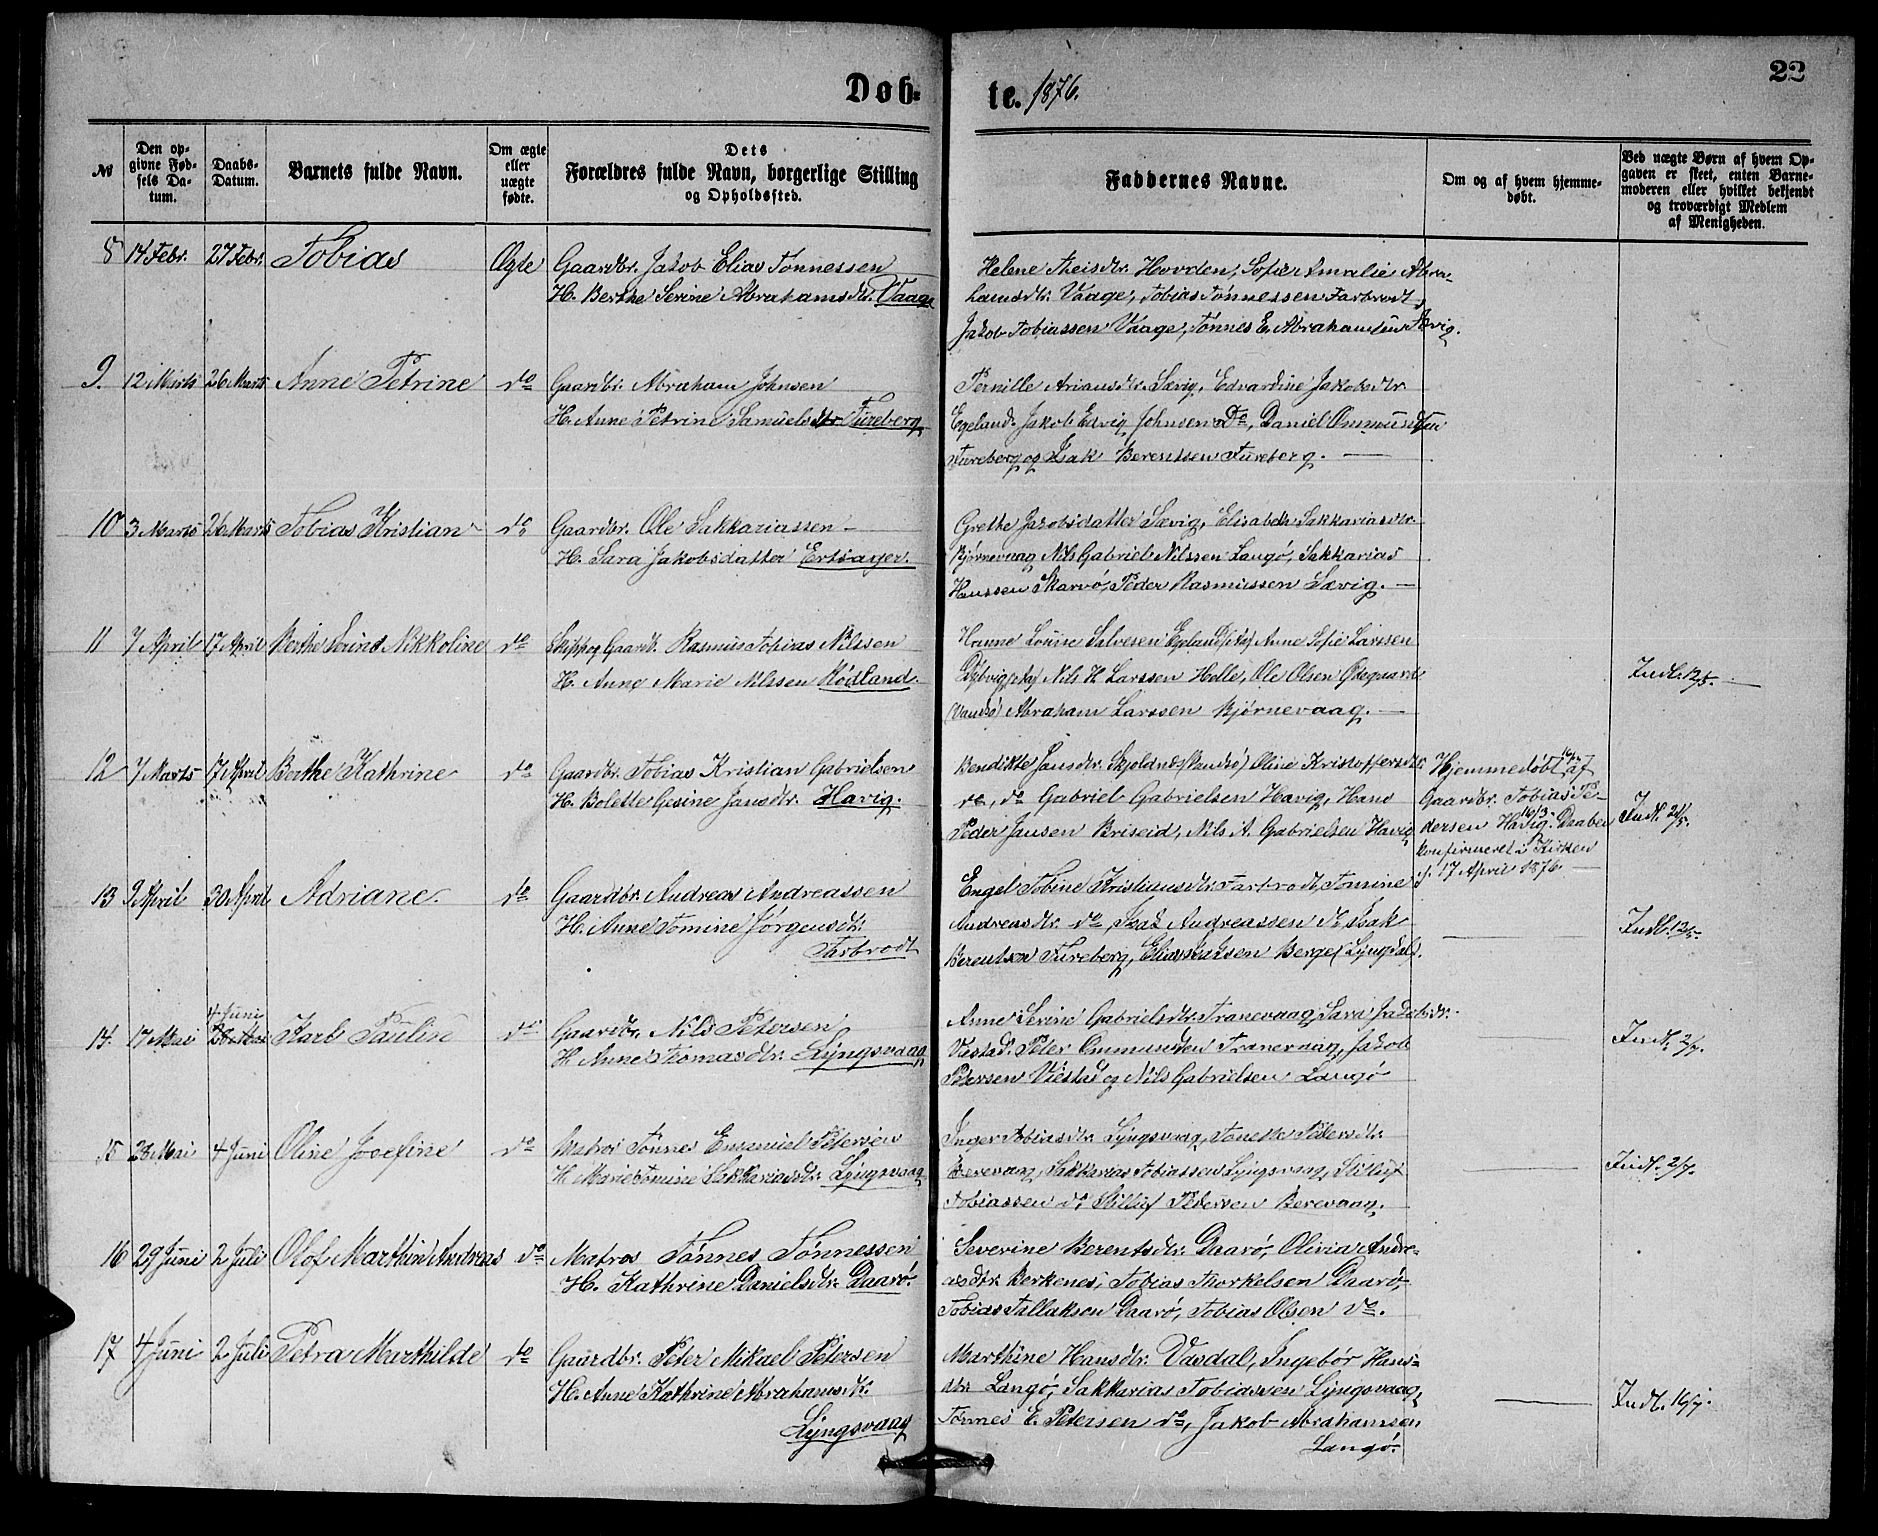 Døb-
te. 1876.
22
№
Den op-
givne Fød-
sels Da-
tum.
Daabs-
Datum.
Barnets fulde Navn.
Om ægte
eller
uægte
fødte.
Dets
Forældres fulde Navn, borgerlige Stilling
og Opholdssted.
Faddernes Navne.
Om og af hvem hjemme-
døbt.
Ved uægte Børn af hvem Op-
gaven er skeet, enten Barne-
moderen eller hvilket bekjendt
og troværdigt Medlem
af Menigheden.
8 14 Febr. 27 Febr. Tobias Ægte Gaardbr. Jakob Elias Tønnessen
H. Berthe Serine Abrahamsdtr. Vaage
Helene Theisdtr. Hovden, Sofie Amalie Abra-
hamsdtr. Vaage, Tobias Tønnessen Farbrodt,
Jakob Tobiassen Vaage, Tønnes E. Abrahamsen Sævig.
9. 12 Marts 26 Marts Anne Petrine do Gaardbr. Abraham Johnsen
H. Anne Petrine Samuelsdtr. Fureberg
Pernille Ariansdtr. Sævig, Edvardine Jakobsdtr.
Egeland. Jakob Edvig Johnsen Do, Daniel Ommundsen
Fureberg og Isak Berentsen Fureberg. —
10 3 Marts 26 Marts Tobias Kristian do Gaardbr. Ole Sakkariassen
H. Sara Jakobsdatter Ertsager.
Grethe Jakobsdatter Sævig, Elisabeth Sakkariasdtr.
Bjørnevaag Nils Gabriel Nilssen Langø, Sakkarias
Hanssen Skarvø, Peder Rasmussen Sævig. —
11 7 April 17 April Berthe Serine Nikkoline do Skipp og Gaardb. Rasmus Tobias Nilssen
H. Anne Marie Nilssen Rødland.
Hanne Louise Salvesen Egeland Anne Sofie Larssen
Nils H. Larssen Helle, Ole Olsen Ødegaard
(Vandsø) Abraham Larssen Bjørnevaag. —
Indl. 12/5. —
12 7 Marts 17 April Berthe Kathrine do Gaardbr. Tobias Kristian Gabrielsen
H. Bolette Gesine Jansdtr. Havig.
Bendikte Jansdtr. Skjoldnes (Vandsø) Oline Kristoffersdtr.
do, do Gabriel Gabrielsen Havig, Hans
Peder Jansen Briseid, Nils A. Gabrielsen Havig
Hjemmedøbt af
Gaardbr. Tobias Pe-
dersen Havig. 16/3. Daaben
konfirmeret i Kirken
d. 17 April 1876. —
Indl. 21/5.
13 9 April 30 April Adriane. do Gaardbr. Andreas Andreassen
H. Anne Tomine Jørgensdtr.
Farbrodt
Engel Tobine Kristiansdtr. Farbrodt, Tomine
Andreasdtr. do, Isak Andreassen do Isak
Berentsen Fureberg, Elias Isaksen Berge (Lyngdal).
Indl. 12/5.
4 Juni
14. 17 Mai 28 Mai Karl Paulin do Gaardbr. Nils Petersen
H. Anne Tomasdtr. Lyngsvaag
Anne Serine Gabrielsdtr. Tranevaag, Sara Jakobsdtr.
Vestad. Peter Ommundsen Tranevaag, Jakob
Petersen Viestad og Nils Gabrielsen Langø
Indl. 2/7.
15 28 Mai 4 Juni Oline Josefine do Matros Tønnes Emanuel Petersen
H. Marie Tomine Sakkariasdtr. Lyngsvaag
Inger Tobiasdtr. Lyngsvaag, Tonette Pedersdtr.
Berevaag, Sakkarias Tobiassen Lyngsvaag, Stilluf
Tobiassen do Stilluf Pedersen Berevaag.
Indl. 2/7.
16 29 Juni 2 Juli Olof Marthin Andreas do Matros Tønnes Tønnessen
H. Kathrine Danielsdtr. Daarø.
Severine Berentsdtr. Daarø, Olivia Andre-
asdtr. Berkenes, Tobias Thorkelsen Daarø,
Tobias Tallaksen Daarø, Tobias Olsen do.
17 4 Juni 2 Juli Petra Marthilde do Gaardbr. Peter Mikael Petersen
H. Anne Kathrine Abrahamsdtr.
Lyngsvaag
Marthine Hansdtr. Vasdal, Ingebør Hans-
dtr. Langø, Sakkarias Tobiassen Lyngsvaag,
Tønnes E. Petersen do, Jakob Abrahamsen
Langø.
Indl. 16/7.